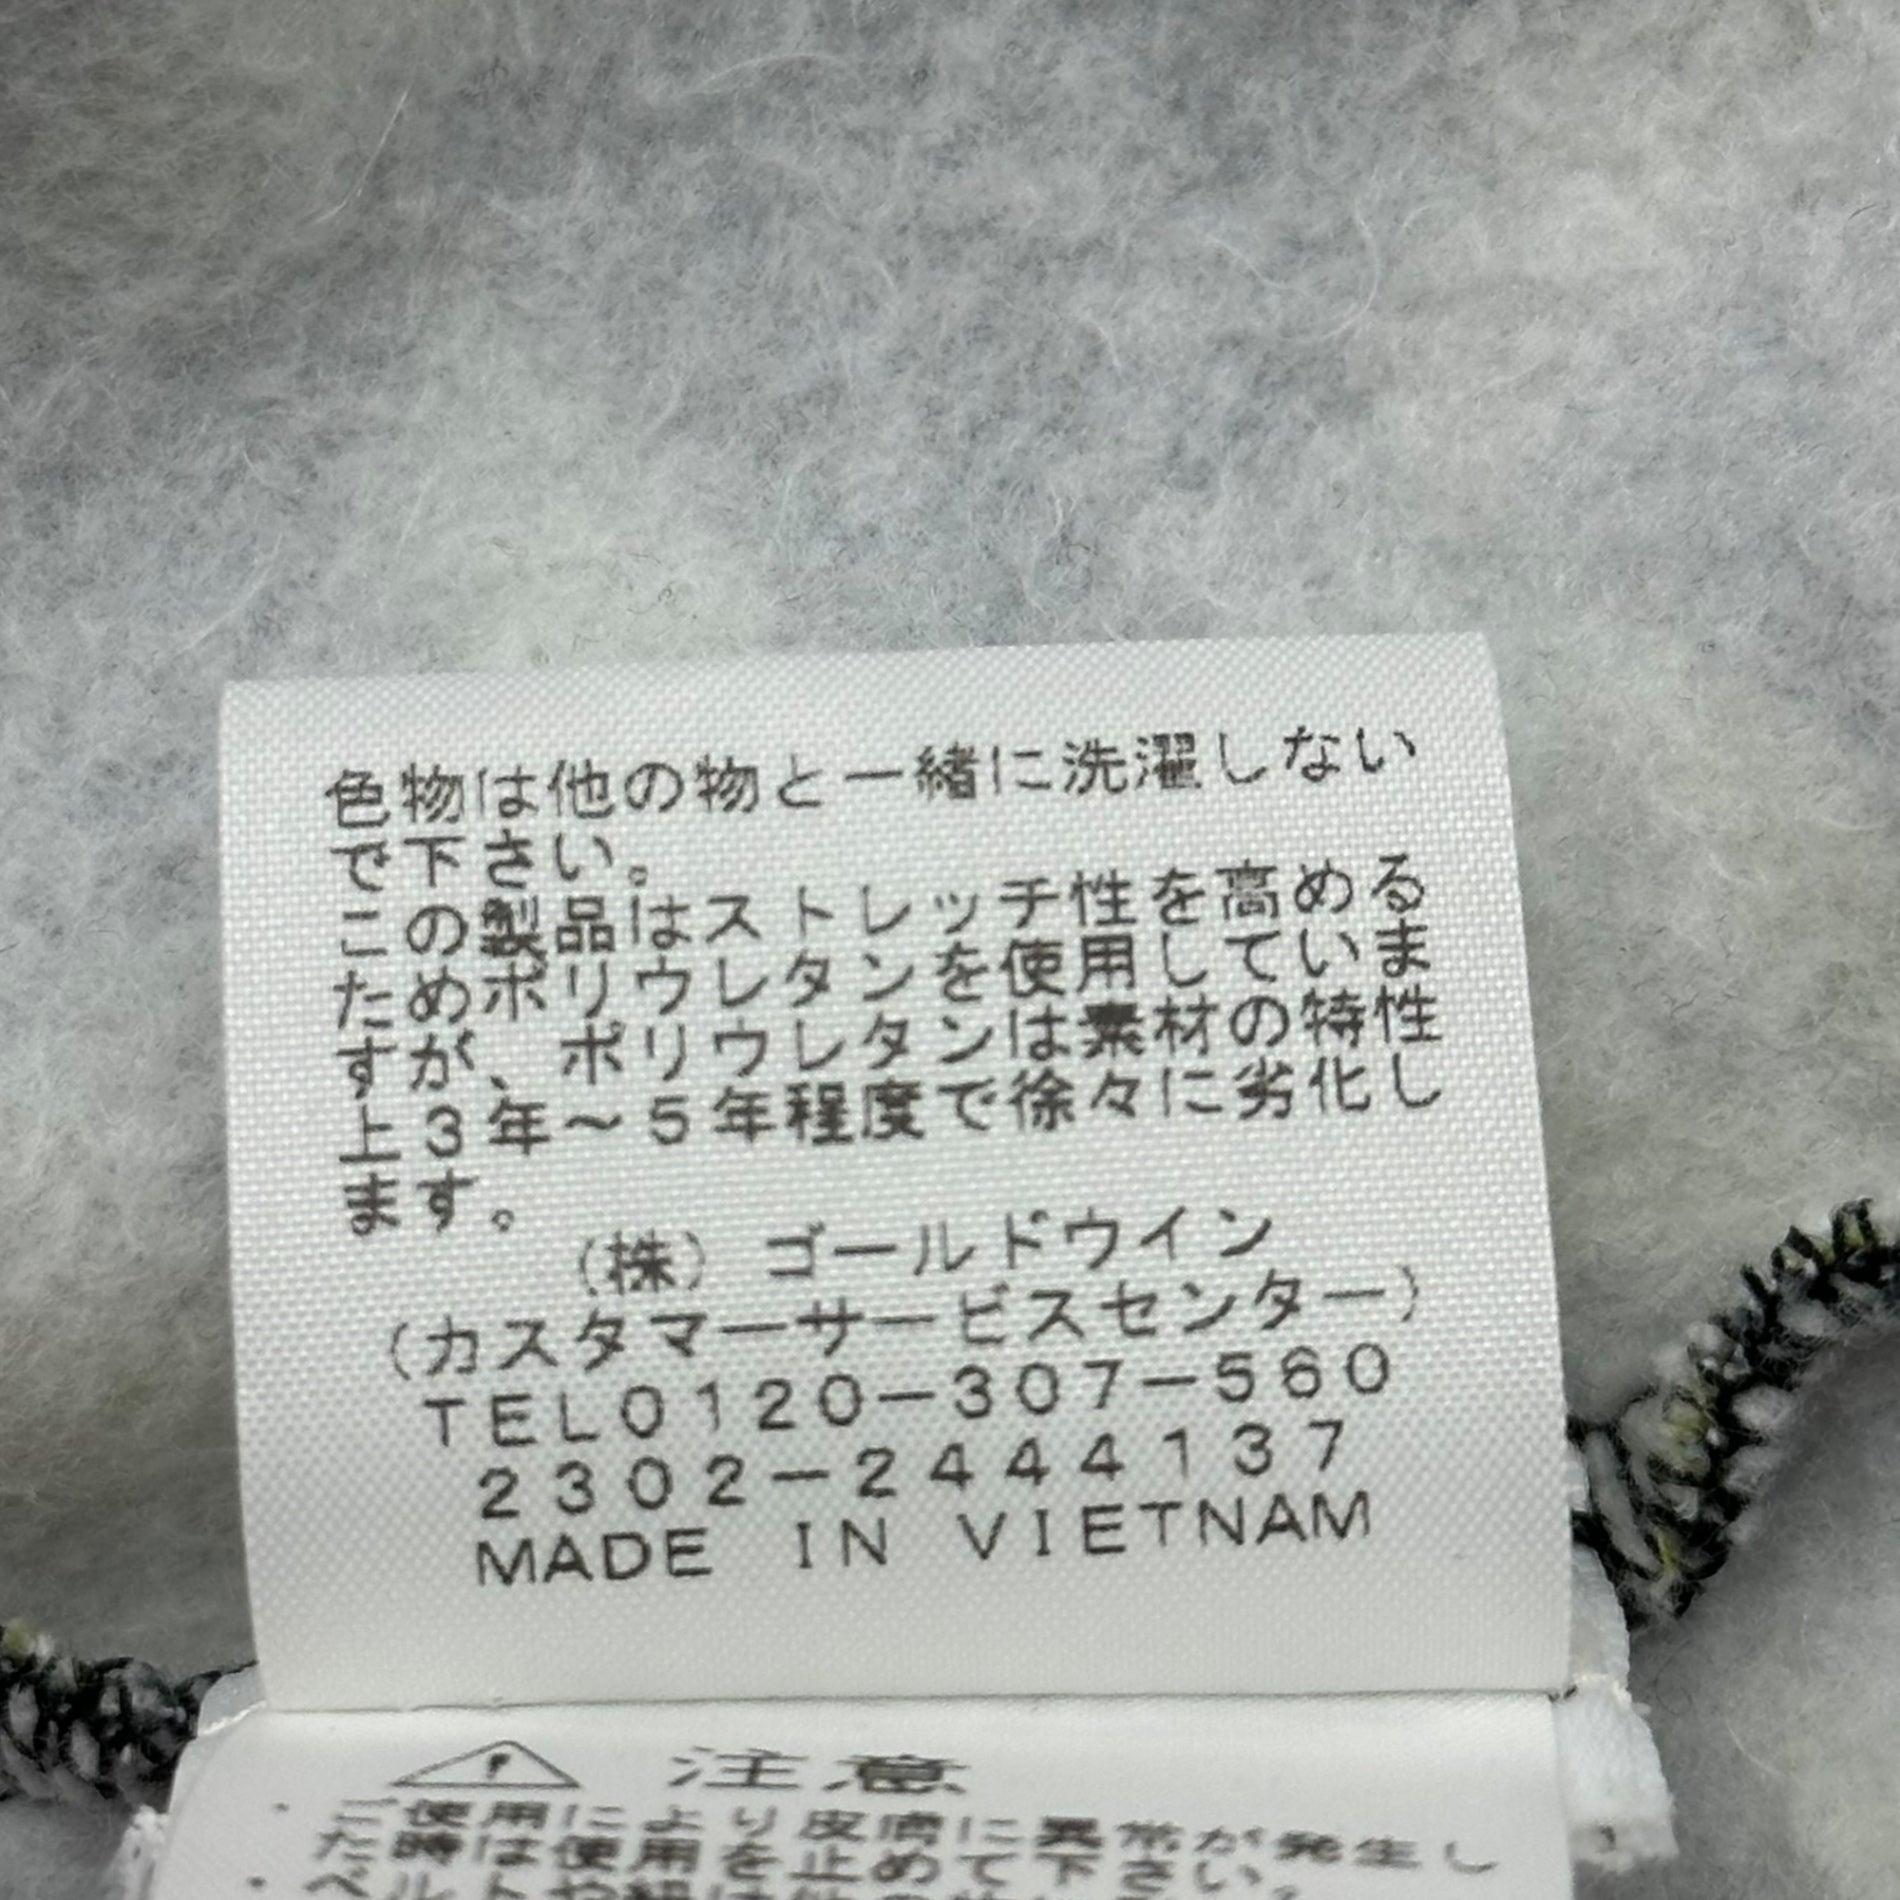 色物は他の物と一緒に洗濯しない
で下さい。
この製品はストレッチ性を高める
ためポリウレタンを使用していま
すが、ポリウレタンは素材の特性
上3年～5年程度で徐々に劣化し
ます。
(株) ゴールドウイン
(カスタマーサービスセンター)
TEL0120-307-560
2302-2444137
MADE IN VIETNAM
注意
・ご使用により皮膚に異常が発生し
た時は使用を止めて下さい。